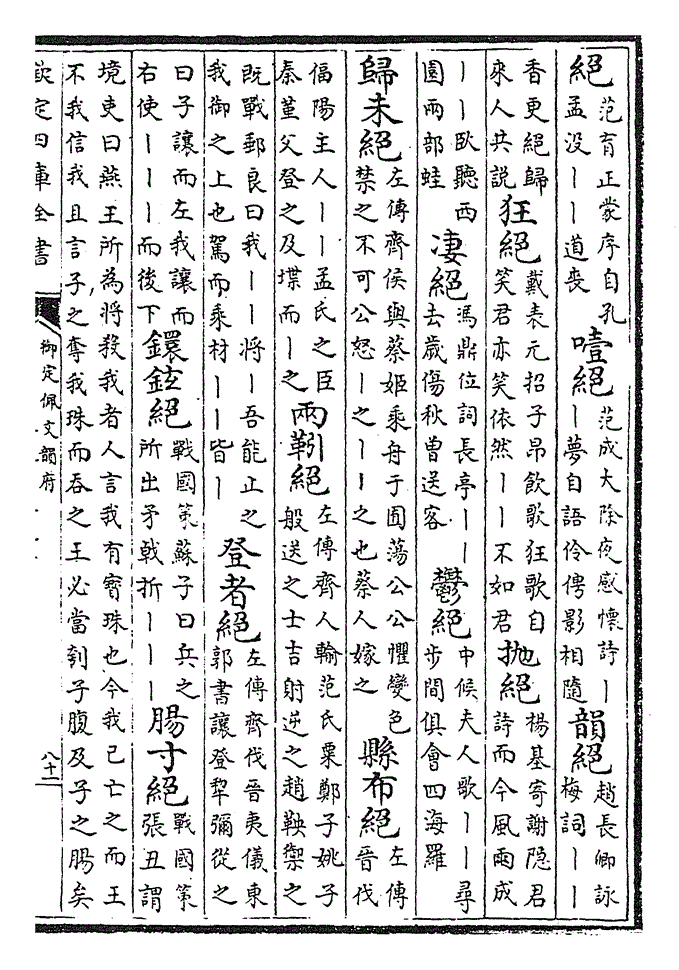 絕范育正蒙序自孔孟沒丨丨道喪 噎絕范成大除夜感懷詩丨丨夢自語伶俜影相隨 韻絕趙長卿詠梅詞丨丨
香更絕歸來人共說 狂絕戴表元招子昂飲歌狂歌自笑君亦笑依然丨丨不如君 拋絕楊基寄謝隐君詩而今風雨成
丨丨臥聽西園兩部蛙 凄絕馮鼎位詞長亭丨丨去歲傷秋曾送客 鬱絕中候夫人歌丨丨尋步間俱會四海羅
歸未絕左傳齊侯與蔡姬乘舟于囿蕩公公懼變色禁之不可公怒丨之丨丨之也蔡人嫁之 縣布絕左傳晉伐
偪陽主人丨丨孟氏之臣秦堇父登之及堞而丨之 兩靷絕左傳齊人輸范氏粟鄭子姚子般送之士吉射逆之趙鞅禦之
既戰郵良曰我丨丨將丨吾能止之我御之上也駕而乘材丨丨皆丨 登者絕左傳齊伐晉夷儀東郭書讓登犂彌從之
曰子讓而左我讓而右使丨丨丨而後下 鐶鉉絕戰國策蘇子曰兵之所出矛戟折丨丨丨 腸寸絕戰國策張丑謂
境吏曰燕王所為將殺我者人言我有寶珠也今我已亡之而王不我信我且言子之奪我珠而吞之王必當刳子腹及子之腸矣
欽定四庫全書
御定佩文韻府
八十二